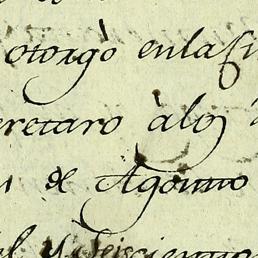 otorgò enla Ci
eretaro àlos
de Agosto
il y seiscientos